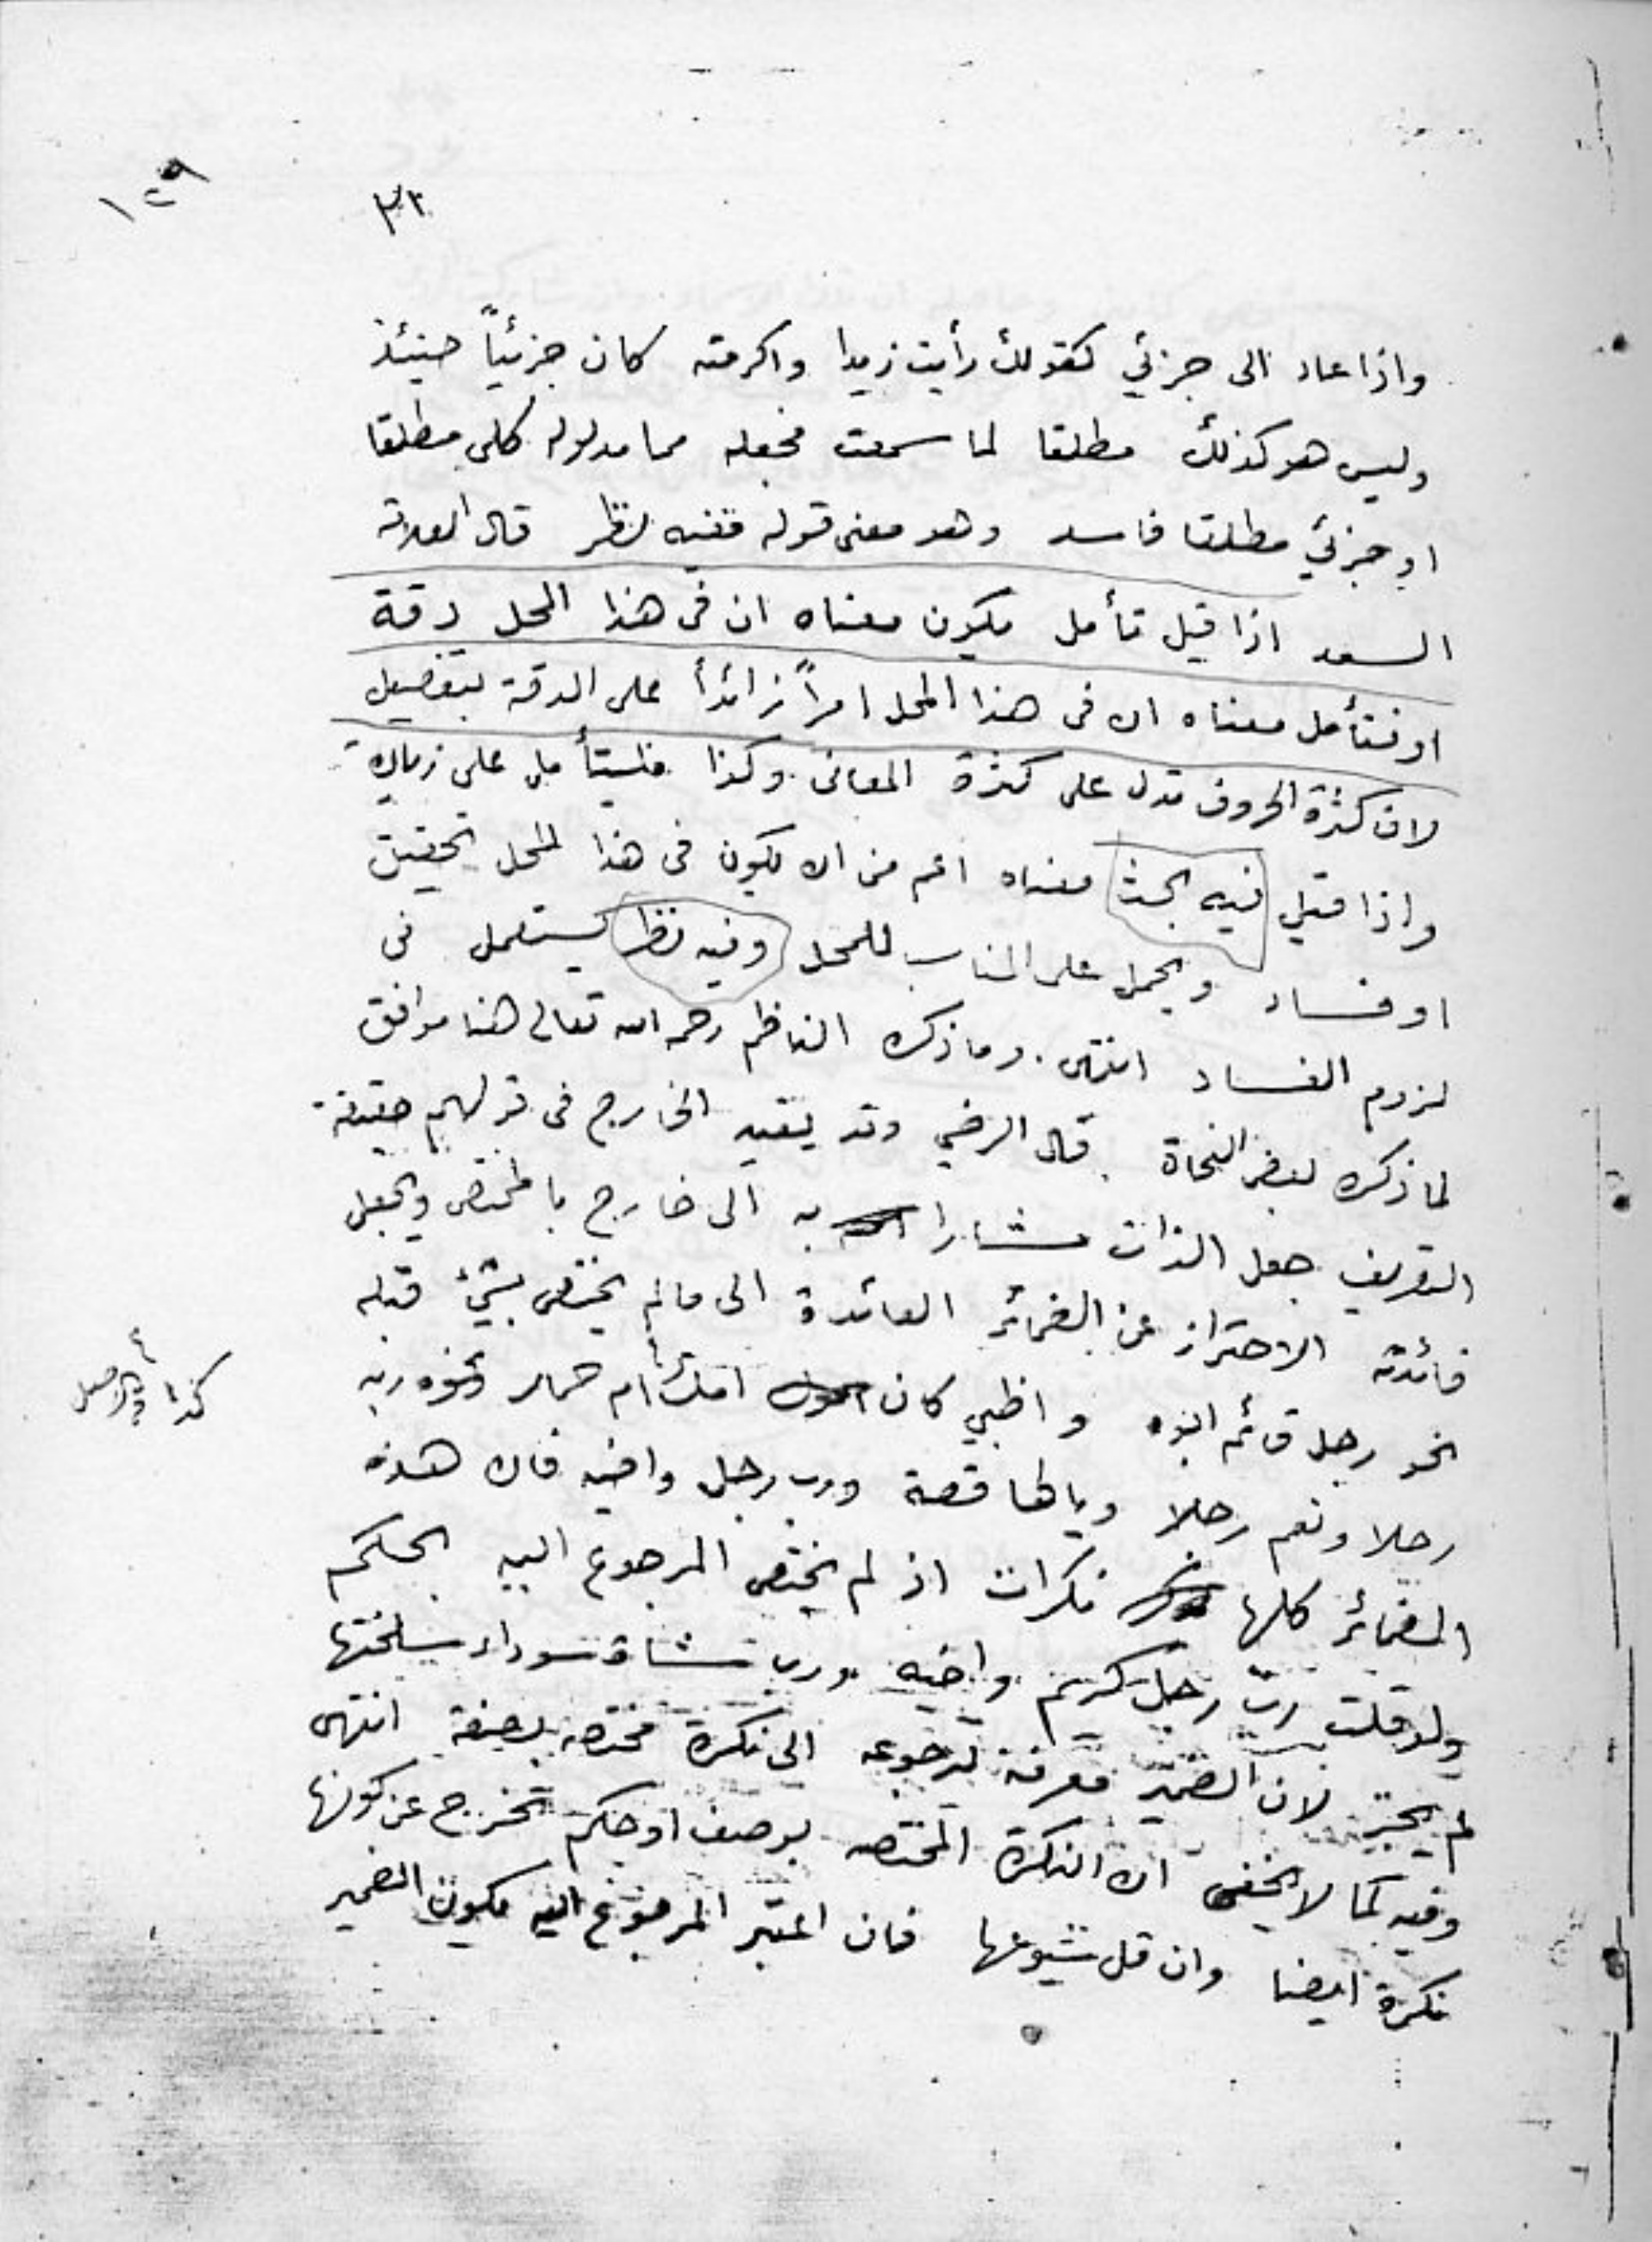 ٣٢
واذا عاد الى جزئي كقولك رأيت زيدا واكرمته كان جزئياً حينئذ
وليس هو كذلك مطلقا لما سمعت فجعله مما مدلوله كلى مطلقا
او جزئي مطلقا فاسد وهو معنى قوله ففيه نظر قال العلامة
السعد اذا قيل تأمل يكون معناه ان فى هذا المحل دقة
او فتأمل معناه ان فى هذا المحل امراً زائداً على الدقة بتفضيل
لان كثرة الحروف تدل على كثرة المعانى وكذا فليتأمل على زيادة
واذا قيل فيه بحث معناه اعم من ان يكون فى هذا المحل تحقيق
او فساد ويحمل على المناسب للمحل وفيه نظر يستعمل فى
لزوم الفساد انتهى . وما ذكره الناظم رحمه الله تعالى هنا موافق
لما ذكره بعض النحاة . قال الرضي وقد يقيد الخارج فى قولهم حقيقة
التعريف جعل الذات مشارا به الى خارج بالمختص ويجعل
فائدته الاحتراز عن الضمائر العائدة الى مالم يختص بشيئ قبله
نحو رجل قائم ابوه واظبي كان امك ام حمار ونحوه ربه
رجلا ونعم رجلا ويالها قصة ورب رجل واخيه فان هذه
الضمائر كلها نكرات اذ لم يختص المرجوع اليه بحكم
ولو قلت ربّ رجل كريم واخيه ورب شاة سوداء سخلتها
لم يجز لان الضمير معرفة لرجوعه الى نكرة مختصه بصفة انتهى
وفيه كما لا يخفى ان النكرة المختصه بوصف او حكم تخرج عن كونها
نكرة ايضا وان قل شيوعها فان اعتبر المرجوع اليه يكون الضمير
كذا بالاصل